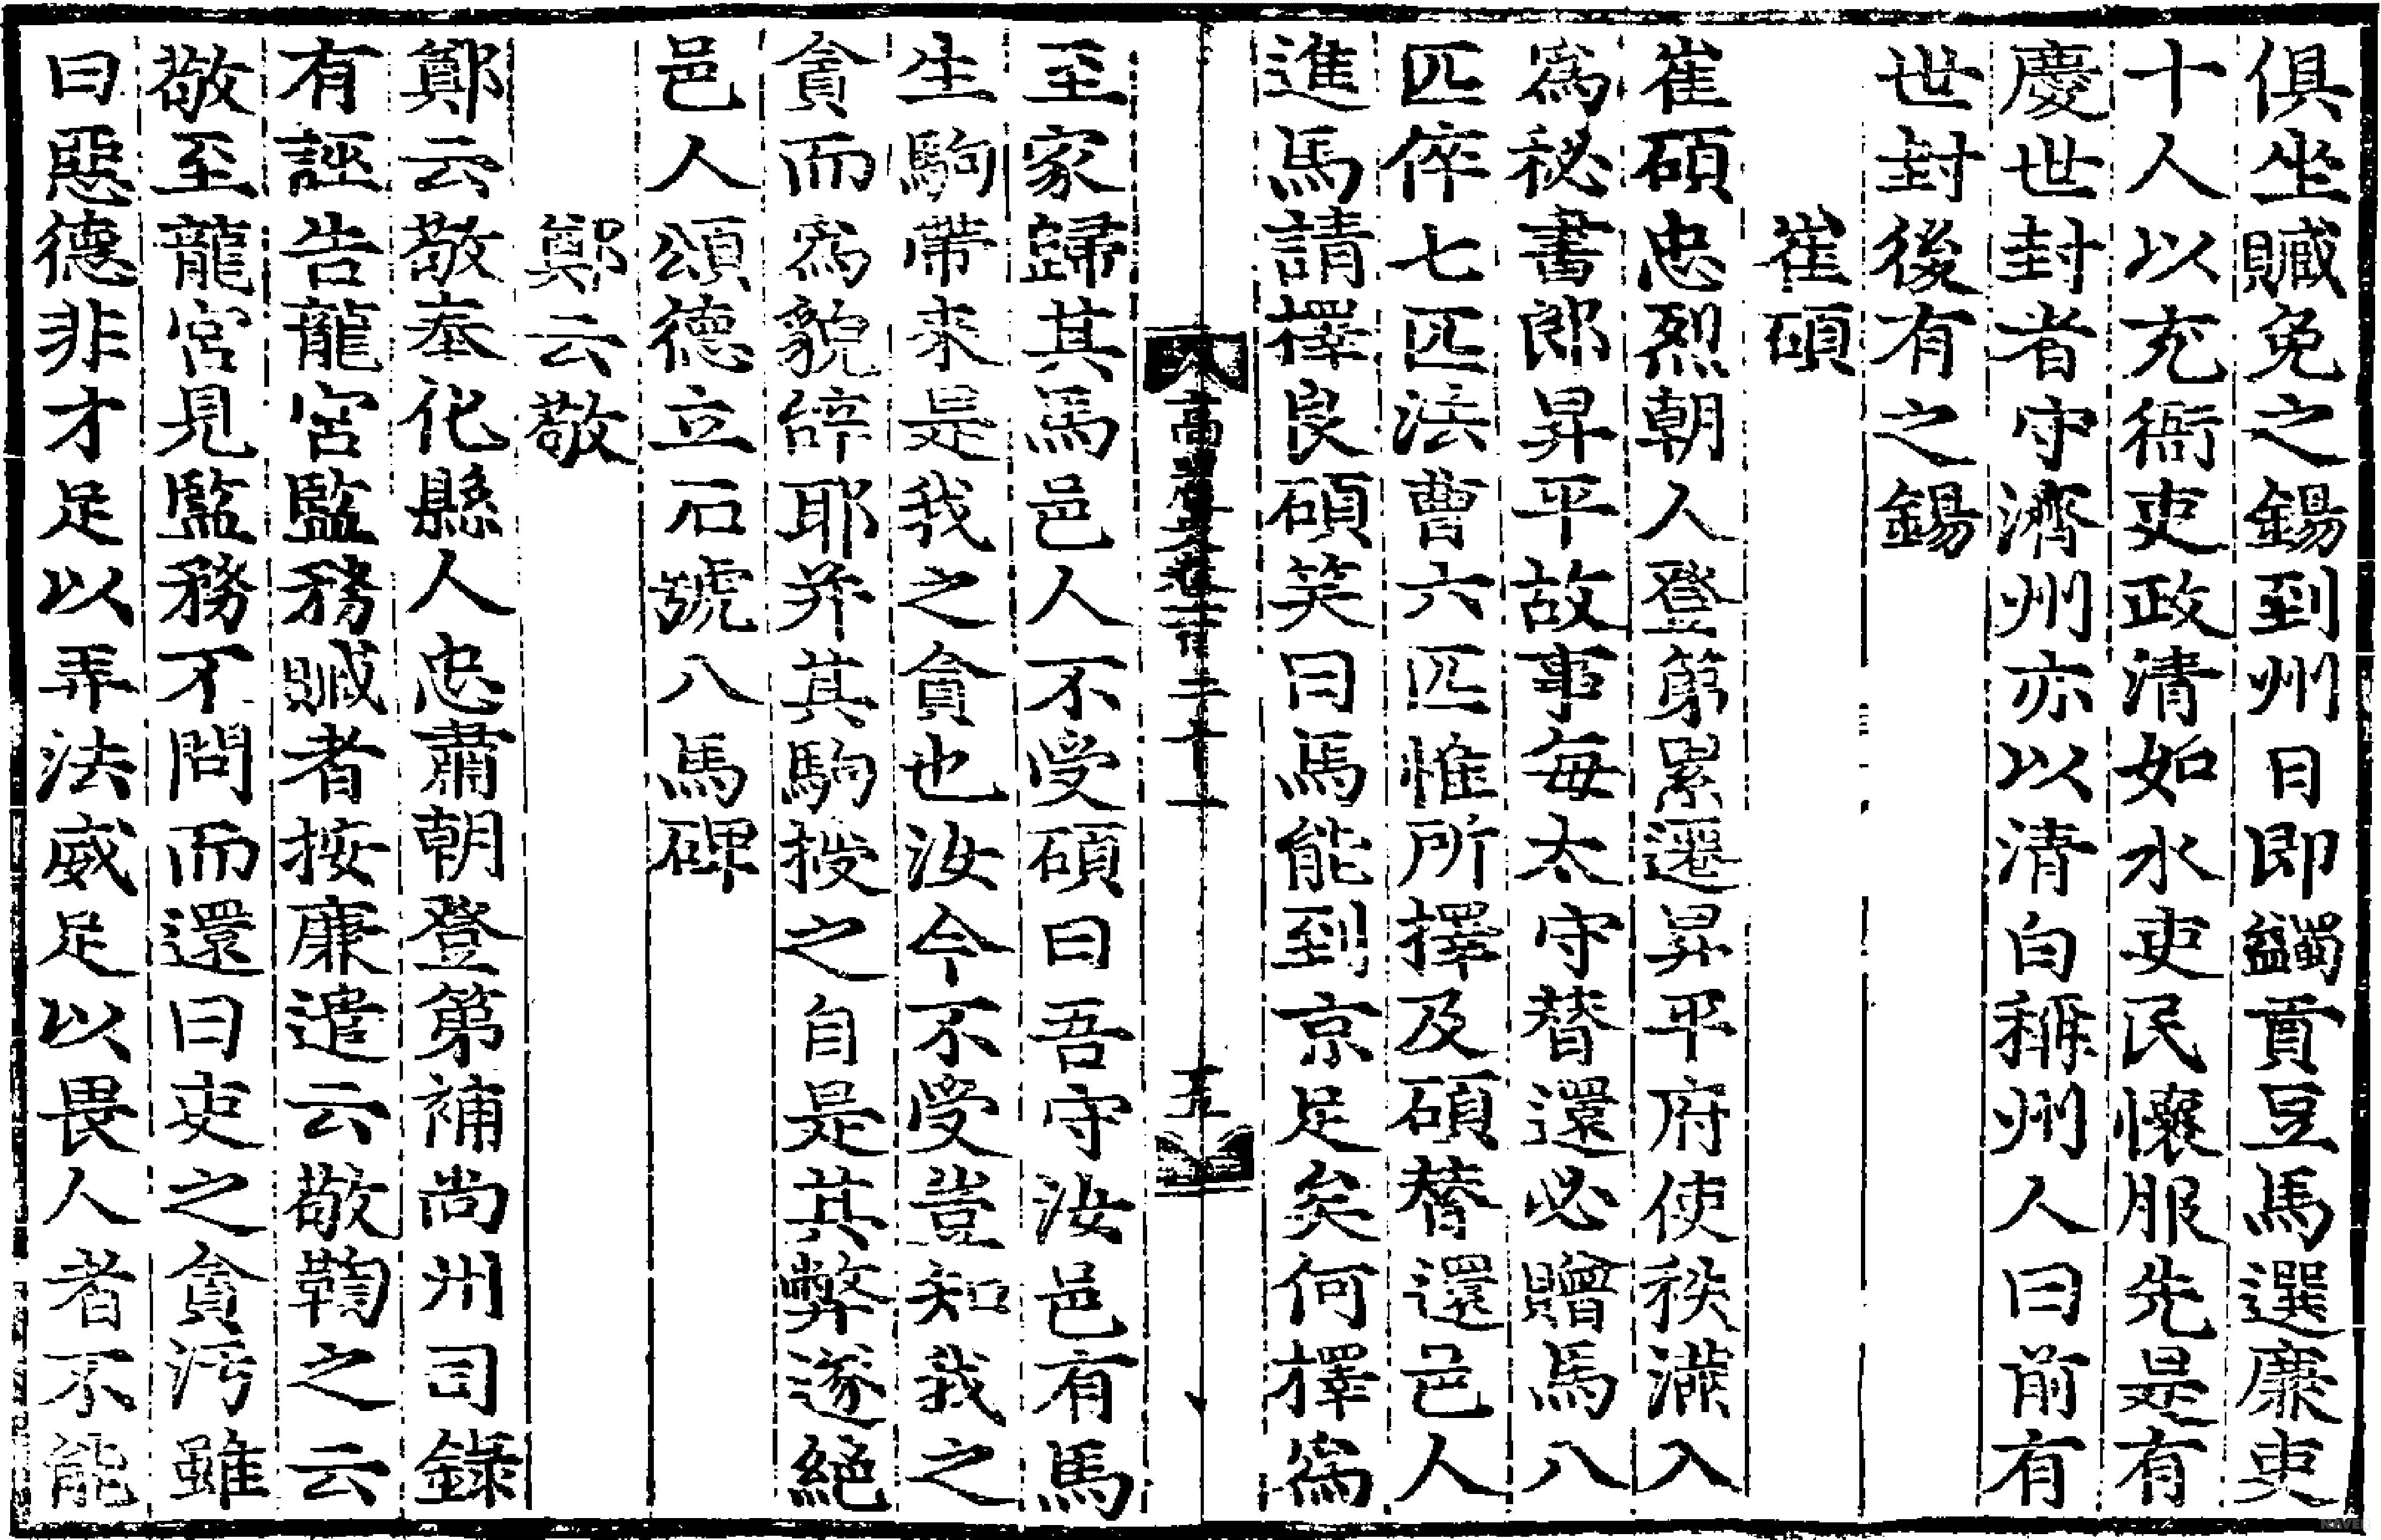 俱坐贓免之錫到州日即蠲貢豆馬選廉吏
十人以充衙吏政清如水吏民懷服先是有
慶世封者守濟州亦以清白稱州人曰前有
世封後有之錫
崔碩
崔碩忠烈朝人登第累遷昇平府使秩滿入
爲秘書郎昇平故事每太守替還必贈馬八
匹倅七匹法曹六匹惟所擇及碩替還邑人
進馬請擇良碩笑曰馬能到京足矣何擇爲
高麗史卷一百二十一
至家歸其馬邑人不受碩曰吾守汝邑有馬
生駒帶來是我之貪也汝今不受豈知我之
貪而爲貌辞耶并其駒授之自是其弊遂絕
邑人頌德立石號八馬碑
鄭云敬
鄭云敬奉化縣人忠肅朝登第補尙州司錄
有誣告龍宮監務贓者按廉遣云敬鞫之云
敬至龍宮見監務不問而還曰吏之貪汚雖
曰惡德非才足以弄法威足以畏人者不能